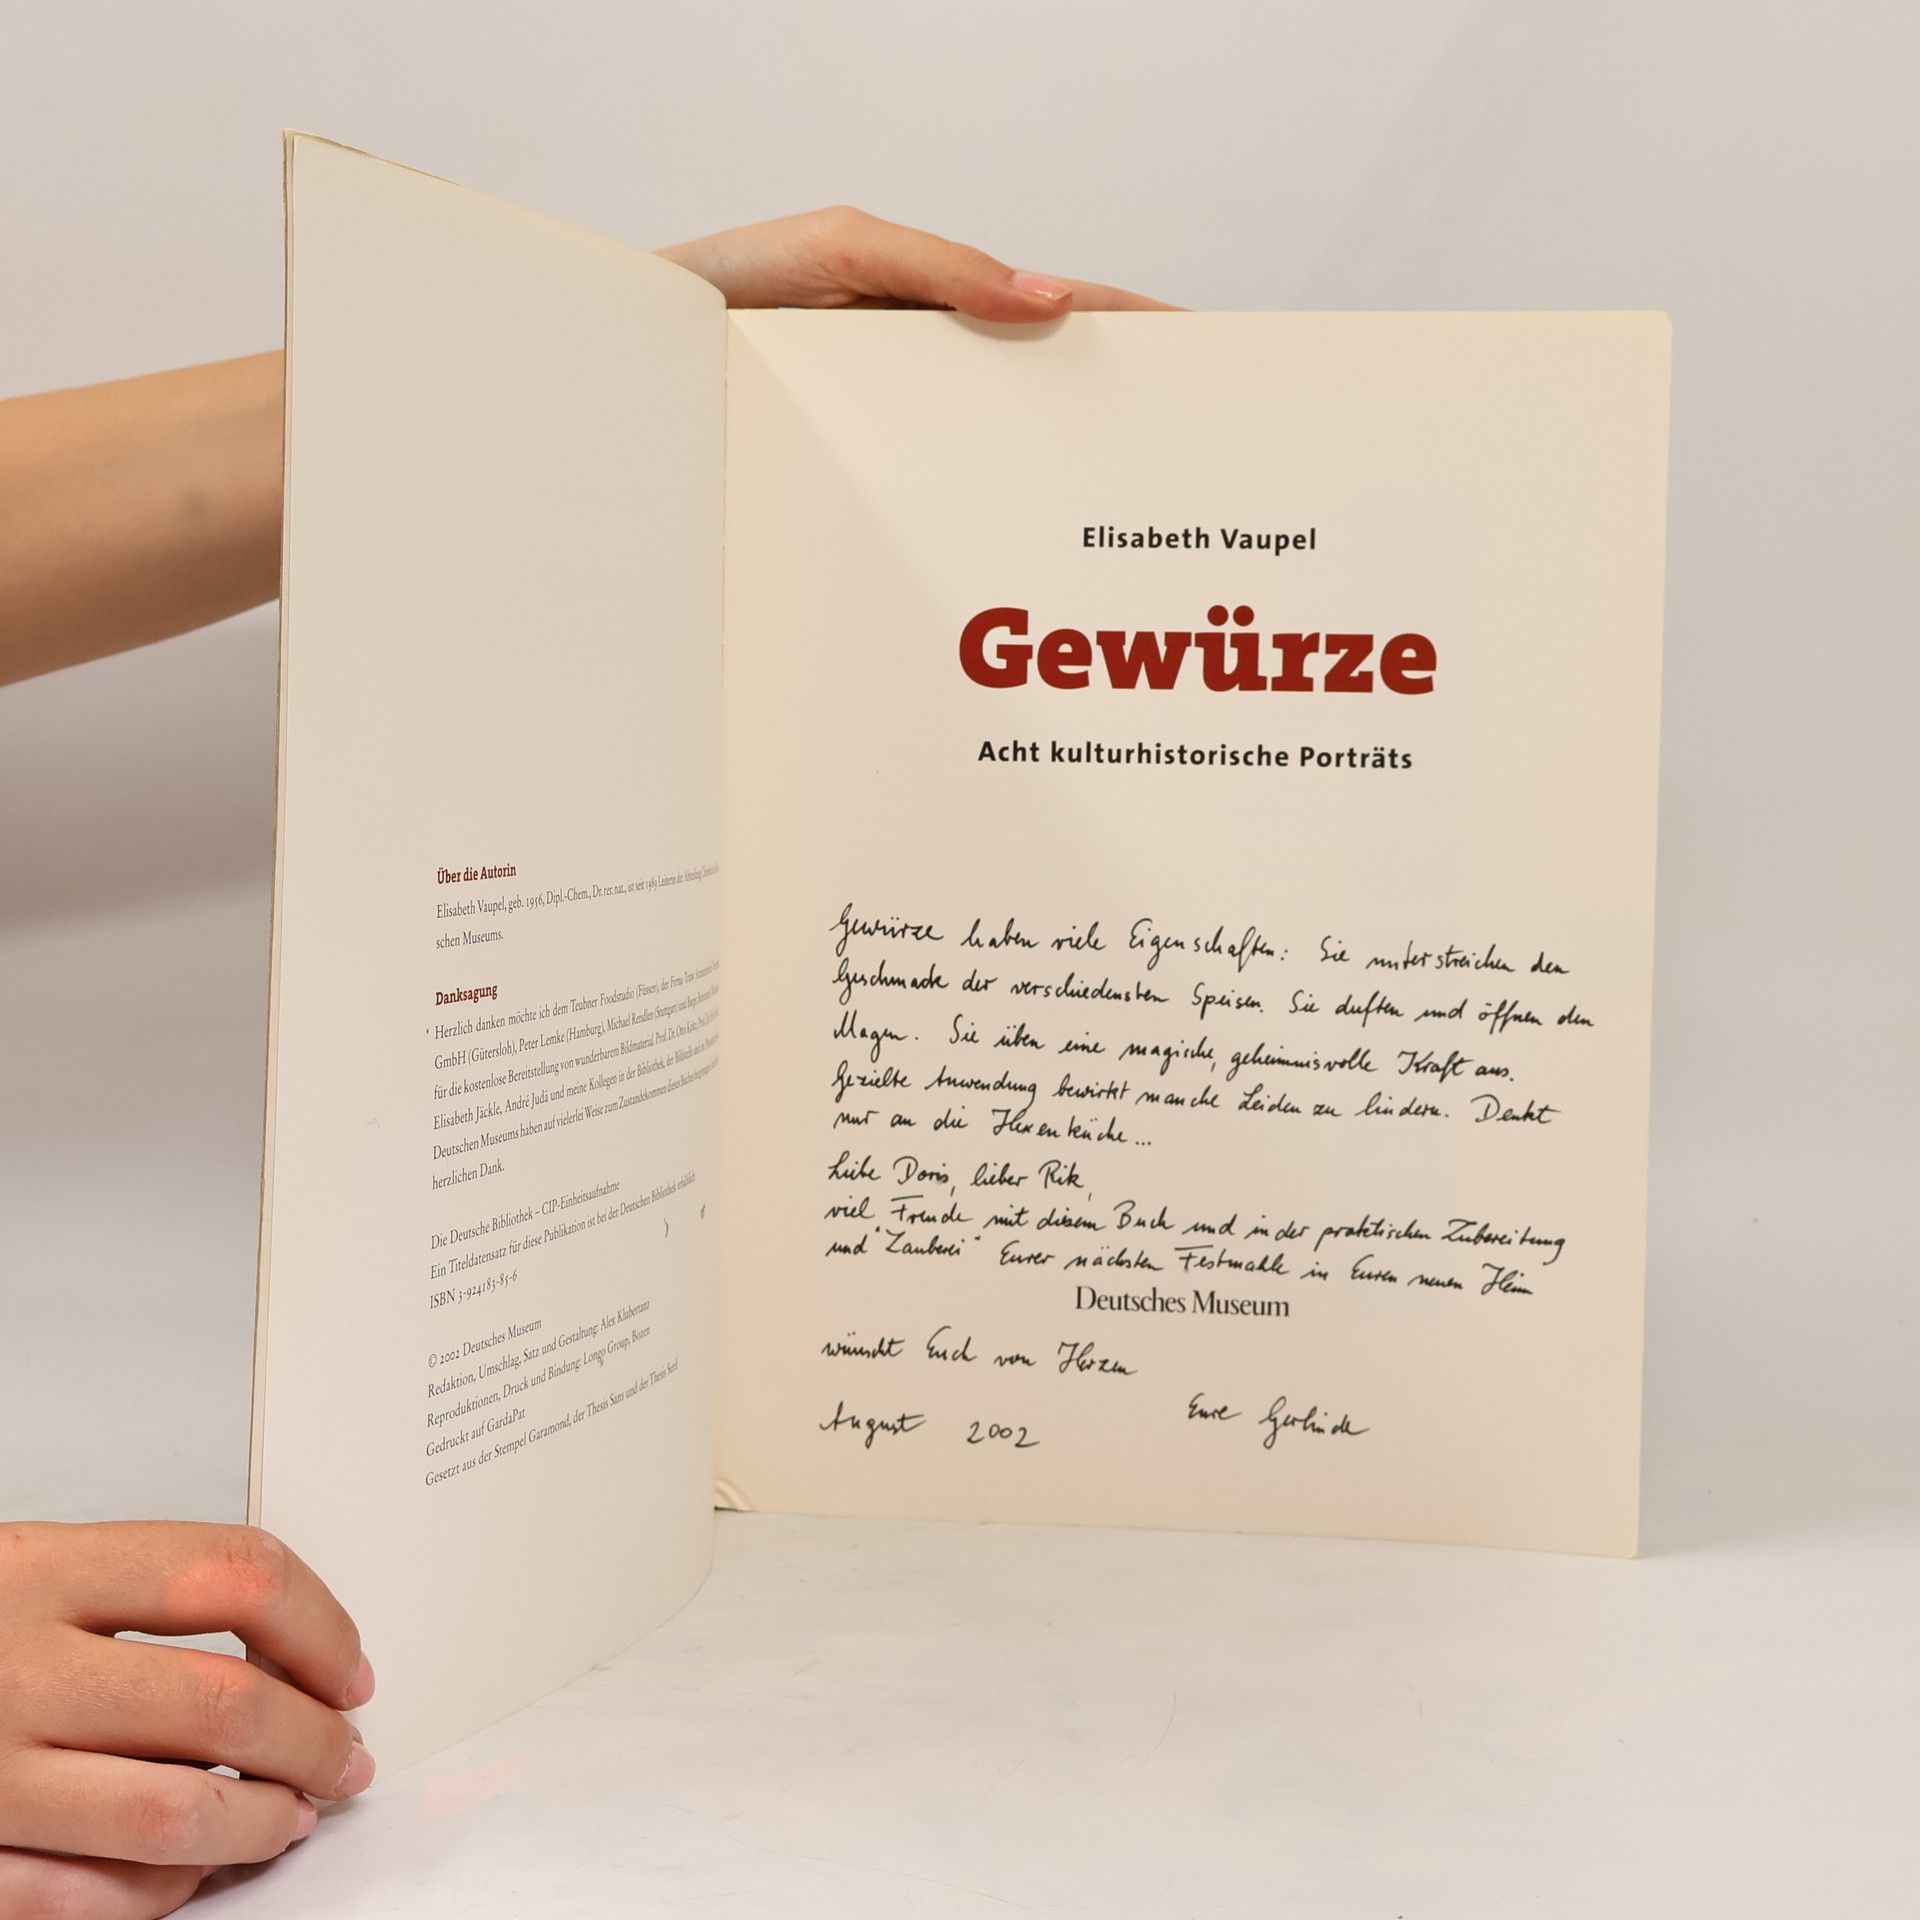 Über die Autorin
Elisabeth Vaupel, geb. 1956, Dipl.-Chem., Dr. rer. nat., ist seit 1989 Leiterin der Abteilung
schen Museums.
Danksagung
Herzlich danken möchte ich dem Teubner Foodstudio (Füssen), der Firma
GmbH (Gütersloh), Peter Lemke (Hamburg), Michael Rendlen (Stuttgart) und
für die kostenlose Bereitstellung von wunderbarem Bildmaterial. Prof. Dr. Otto
Elisabeth Jäckle, André Judä und meine Kollegen in der Bibliothek, der Bildstelle und
Deutschen Museums haben auf vielerlei Weise zum Zustandekommen dieses Buches
herzlichen Dank.
Die Deutsche Bibliothek – CIP-Einheitsaufnahme
Ein Titeldatensatz für diese Publikation ist bei der Deutschen Bibliothek erhältlich
ISBN 3-924183-85-6
© 2002 Deutsches Museum
Redaktion, Umschlag, Satz und Gestaltung: Alex Klubertanz
Reproduktionen, Druck und Bindung: Longo Group, Bozen
Gedruckt auf GardaPat
Gesetzt aus der Stempel Garamond, der Thesis Sans und der Thesis Serif
Elisabeth Vaupel
Gewürze
Acht kulturhistorische Porträts
Gewürze haben viele Eigenschaften: Sie unterstreichen den
Geschmack der verschiedensten Speisen. Sie duften und öffnen den
Magen. Sie üben eine magische, geheimnisvolle Kraft aus.
Gezielte Anwendung bewirkt manche Leiden zu lindern. Denkt
nur an die Hexenküche...
Liebe Doris, lieber Rik,
viel Freude mit diesem Buch und in der praktischen Zubereitung
und "Zauberei" Eurer nächsten Festmahle in Euren neuen Heim
Deutsches Museum
wünscht Euch von Herzen
Eure Gerlinde
August 2002